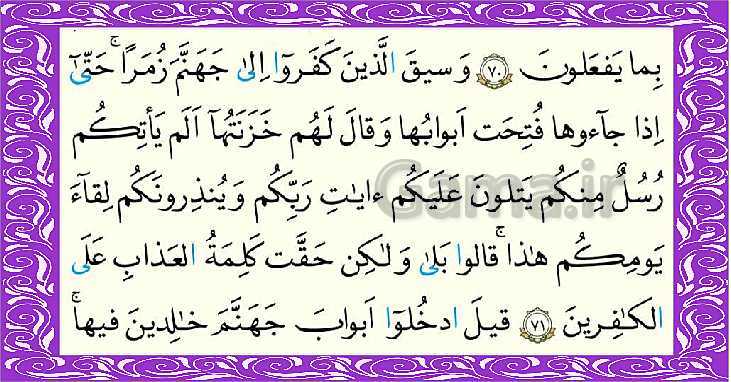 بِما يَفعَلونَ ﴿۷۰﴾ وَسيقَ الَّذينَ كَفَروا اِلىٰ جَهَنَّمَ زُمَرًا ۚ حَتّىٰٓ
اِذا جآءوها فُتِحَت اَبوابُها وَقالَ لَهُم خَزَنَتُهآ اَلَم يَأتِكُم
رُسُلٌ مِنكُم يَتلونَ عَلَيكُم ءايٰتِ رَبِّكُم وَيُنذِرونَكُم لِقآءَ
يَومِكُم هٰذا ۚ قالوا بَلىٰ وَلٰكِن حَقَّت كَلِمَةُ العَذابِ عَلَى
الكٰفِرينَ ﴿۷۱﴾ قيلَ ادخُلوٓا اَبوابَ جَهَنَّمَ خٰلِدينَ فيها ۚ
Gama.ir